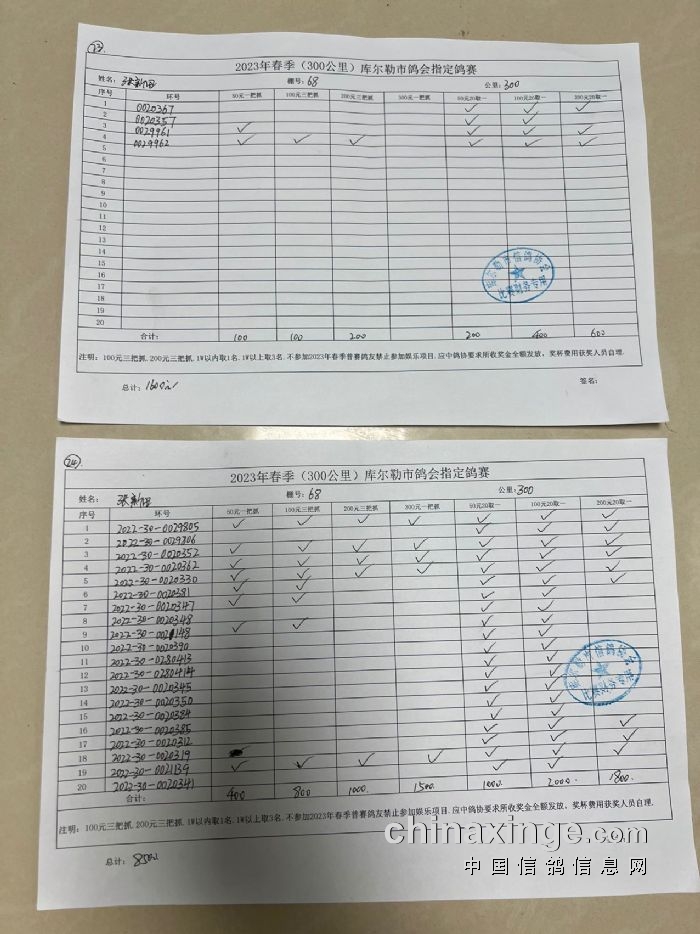 23.
2023年春季（300公里）库尔勒市鸽会指定鸽赛
姓名: 张新 棚号: 68 公里: 300
序号 环号 50元一把抓 100元三把抓 200元三把抓 300元一把抓 50元20取一 100元20取一 200元20取一
1 0020367 ✓ ✓
2 0020357 ✓ ✓
3 0029961 ✓ ✓ ✓ ✓
4 0029962 ✓ ✓ ✓ ✓ ✓ ✓
5
6
7
8
9
10
11
12
13
14
15
16
17
18
19
20
合计: 100 100 200 200 400 600
库尔勒市信鸽协会
比赛财务专用
注明: 100元三把抓. 200元三把抓. 1W以内取1名. 1W以上取3名. 不参加2023年春季普赛鸽友禁止参加娱乐项目. 应中鸽协要求所收奖金全额发放，奖杯费用获奖人员自理.
总计: 1600元 签名:
24.
2023年春季（300公里）库尔勒市鸽会指定鸽赛
姓名: 张新 棚号: 68 公里: 300
序号 环号 50元一把抓 100元三把抓 200元三把抓 300元一把抓 50元20取一 100元20取一 200元20取一
1 2022-30-0029805
2 2022-30-0029806
3 2022-30-0020352
4 2022-30-0020362
5 2022-30-0020330
6 2022-30-0020381
7 2022-30-0020347
8 2022-30-0020348
9 2022-30-0021148
10 2022-30-0020390
11 2022-30-0280413
12 2022-30-0280414
13 2022-30-0020345
14 2022-30-0020350
15 2022-30-0020384
16 2022-30-0020385
17 2022-30-0020312
18 2022-30-0020319
19 2022-30-0021139
20 2022-30-0020341
合计: 400 800 1000 1500 1000 2000 1800
库尔勒市信鸽协会
比赛财务专用
注明: 100元三把抓. 200元三把抓. 1W以内取1名. 1W以上取3名. 不参加2023年春季普赛鸽友禁止参加娱乐项目. 应中鸽协要求所收奖金全额发放，奖杯费用获奖人员自理.
总计: 8500
chinaxinge.com
中国信鸽信息网